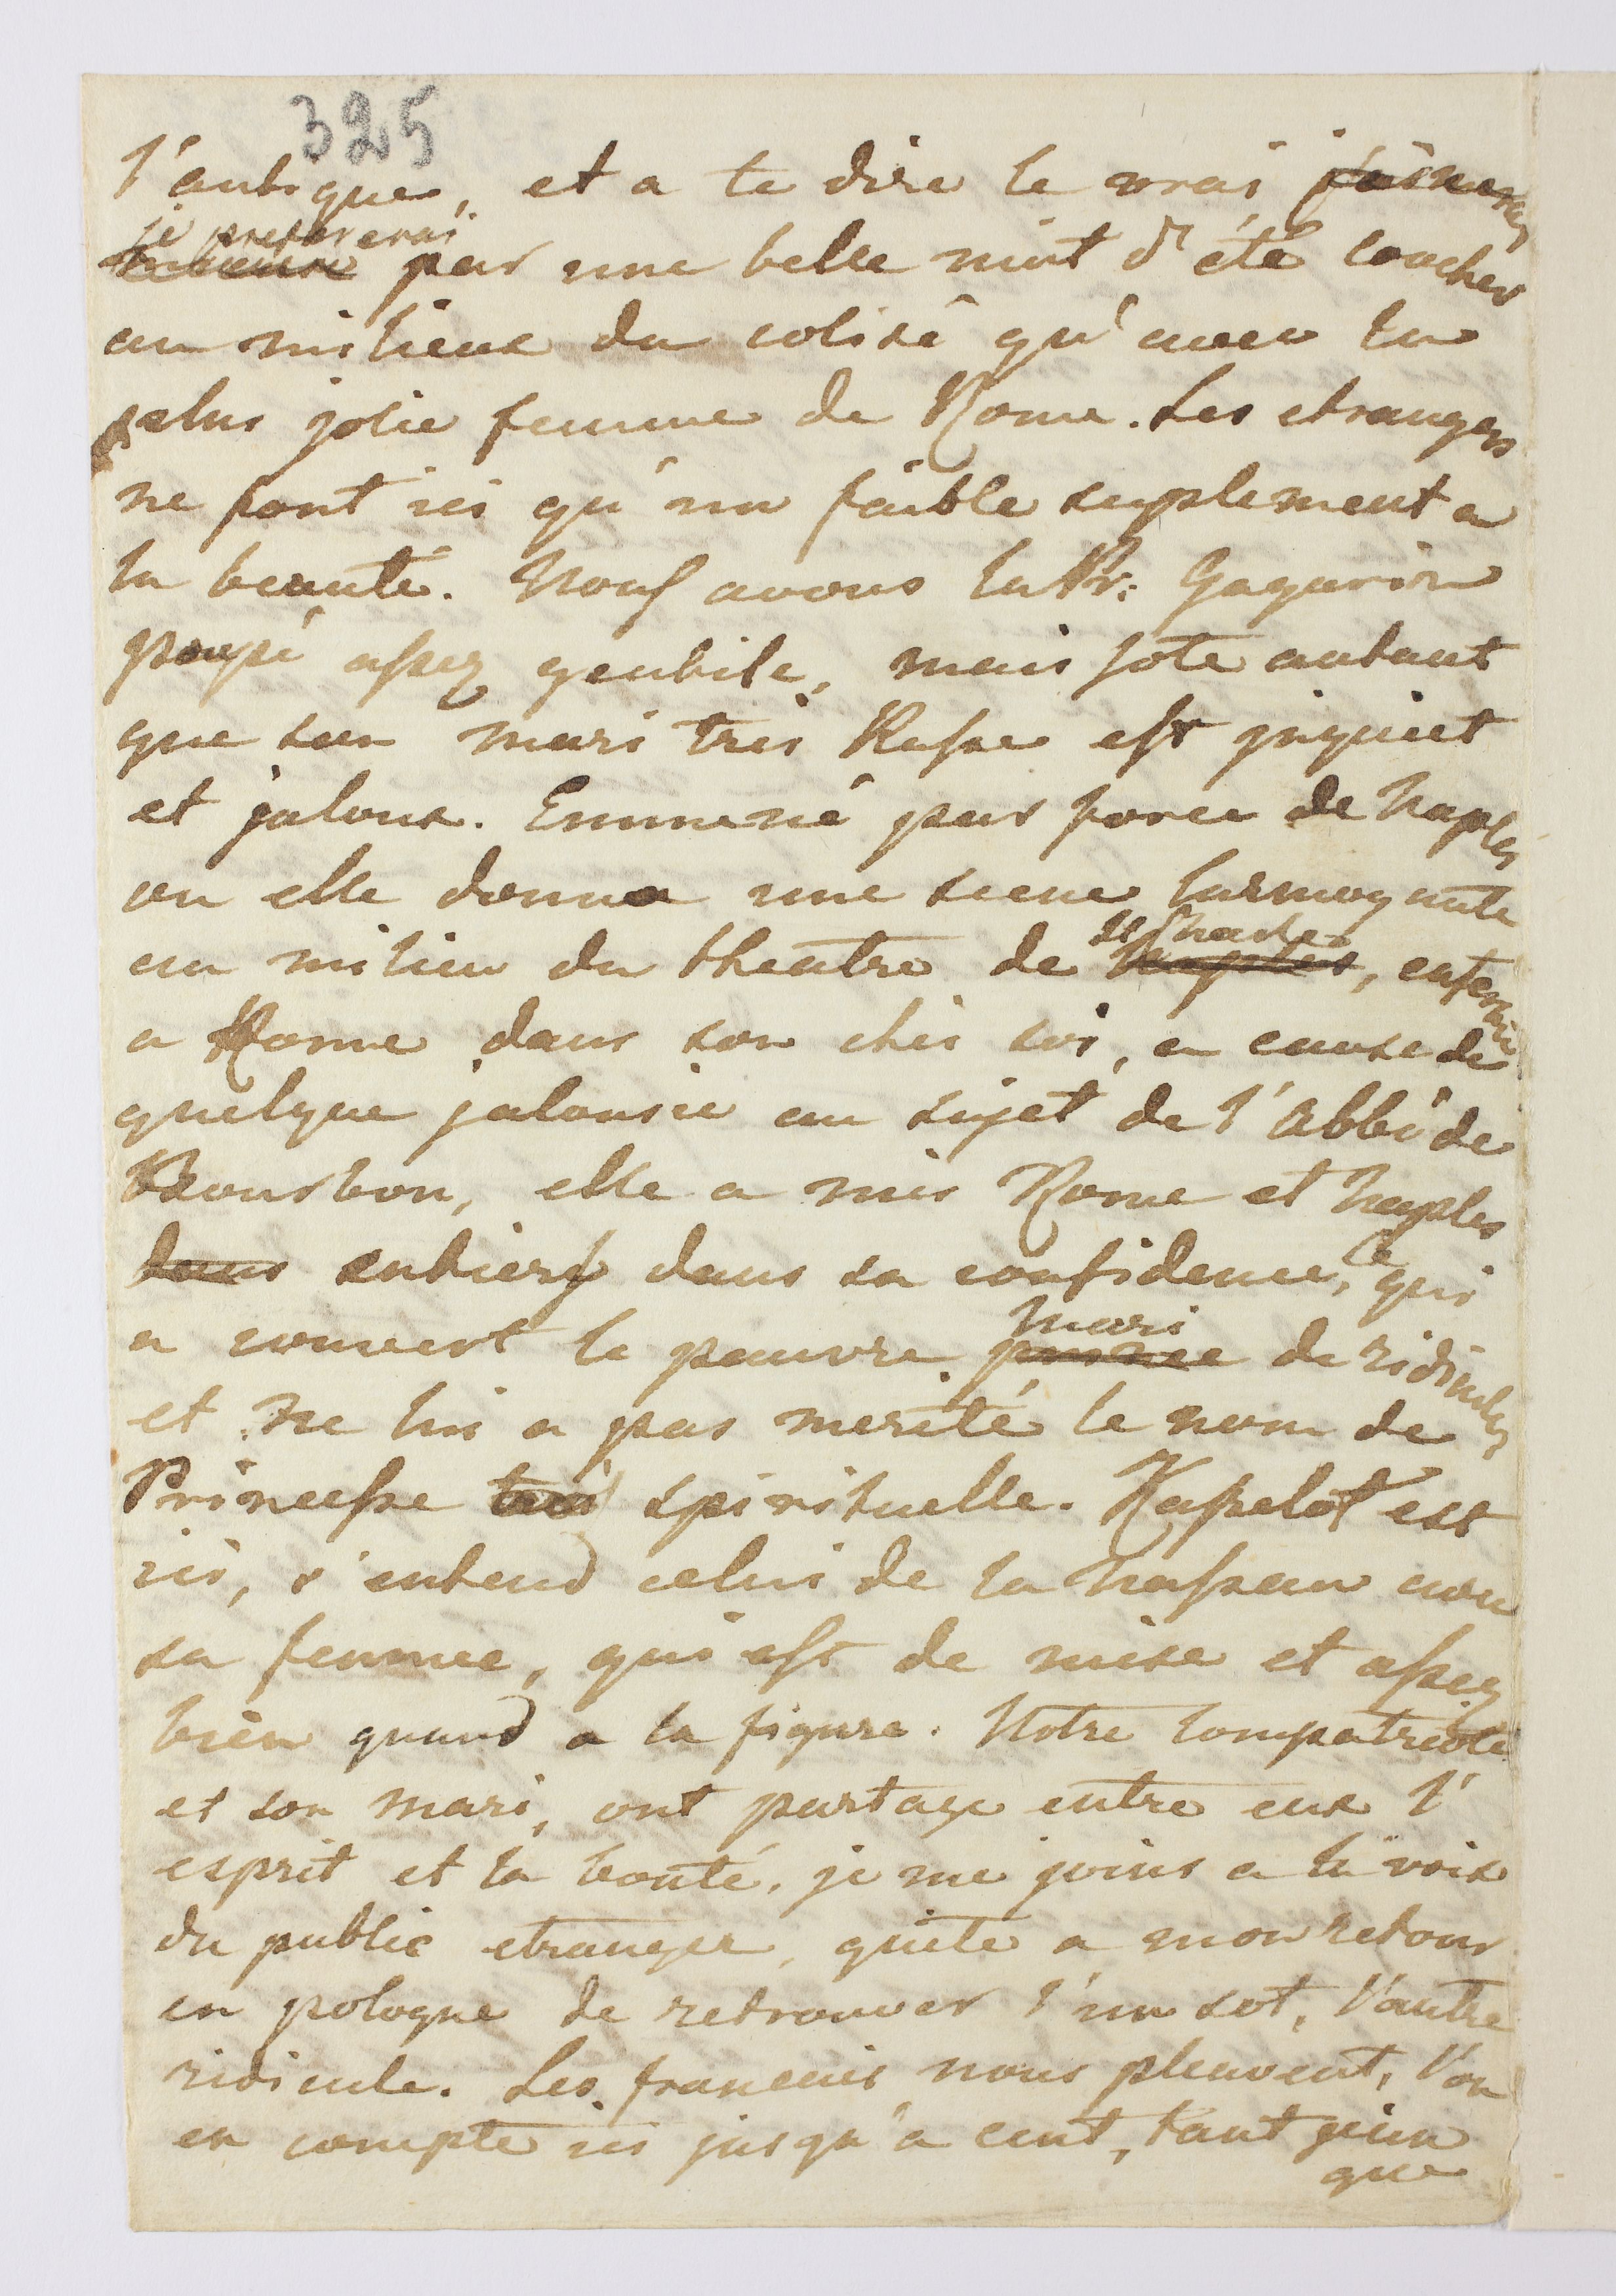 325
l'antique, et a te dire le vrai j'aimerai
je prefererai
mieux par une belle nuit d'été coucher
au milieux du colisé qu'avec la
plus jolie femme de Rome. Les etrangers
ne font ici qu'un faible suplement a
la beauté. Nous avons la Pr: Gagarin
poupé assez gentile, mais sote autant
que son mari tres Russe est inquiet
et jaloux. Emmené par force de Naples
ou elle donna une scene larmoyante
au milieu du theatre de
Naples, enfermé
a Rome dans son chés soi, a cause de
quelque jalousie au sujet de l'Abbé de
Bourbon, elle a mis Rome et Naples
tous entiers dans sa confidence, ce qui
a couvert le pauvre prince de ridicules
mari
et ne lui a pas merité le nom de
Princesse tres spirituelle. Kasselot est
ici, s'entend celui de la Nassau avec
sa femme, qui est de mise et assez
bien quand a la figure. Notre compatriote
et son mari, ont partage entre eux l'
esprit et la bonté, je me joins a la voix
du public etranger, quite a mon retour
en pologne de retrouver l'un sot, l'autre
ridicule. Les francais nous pleuvent, l'on
en compte ici jusqu'a cent, tant
que